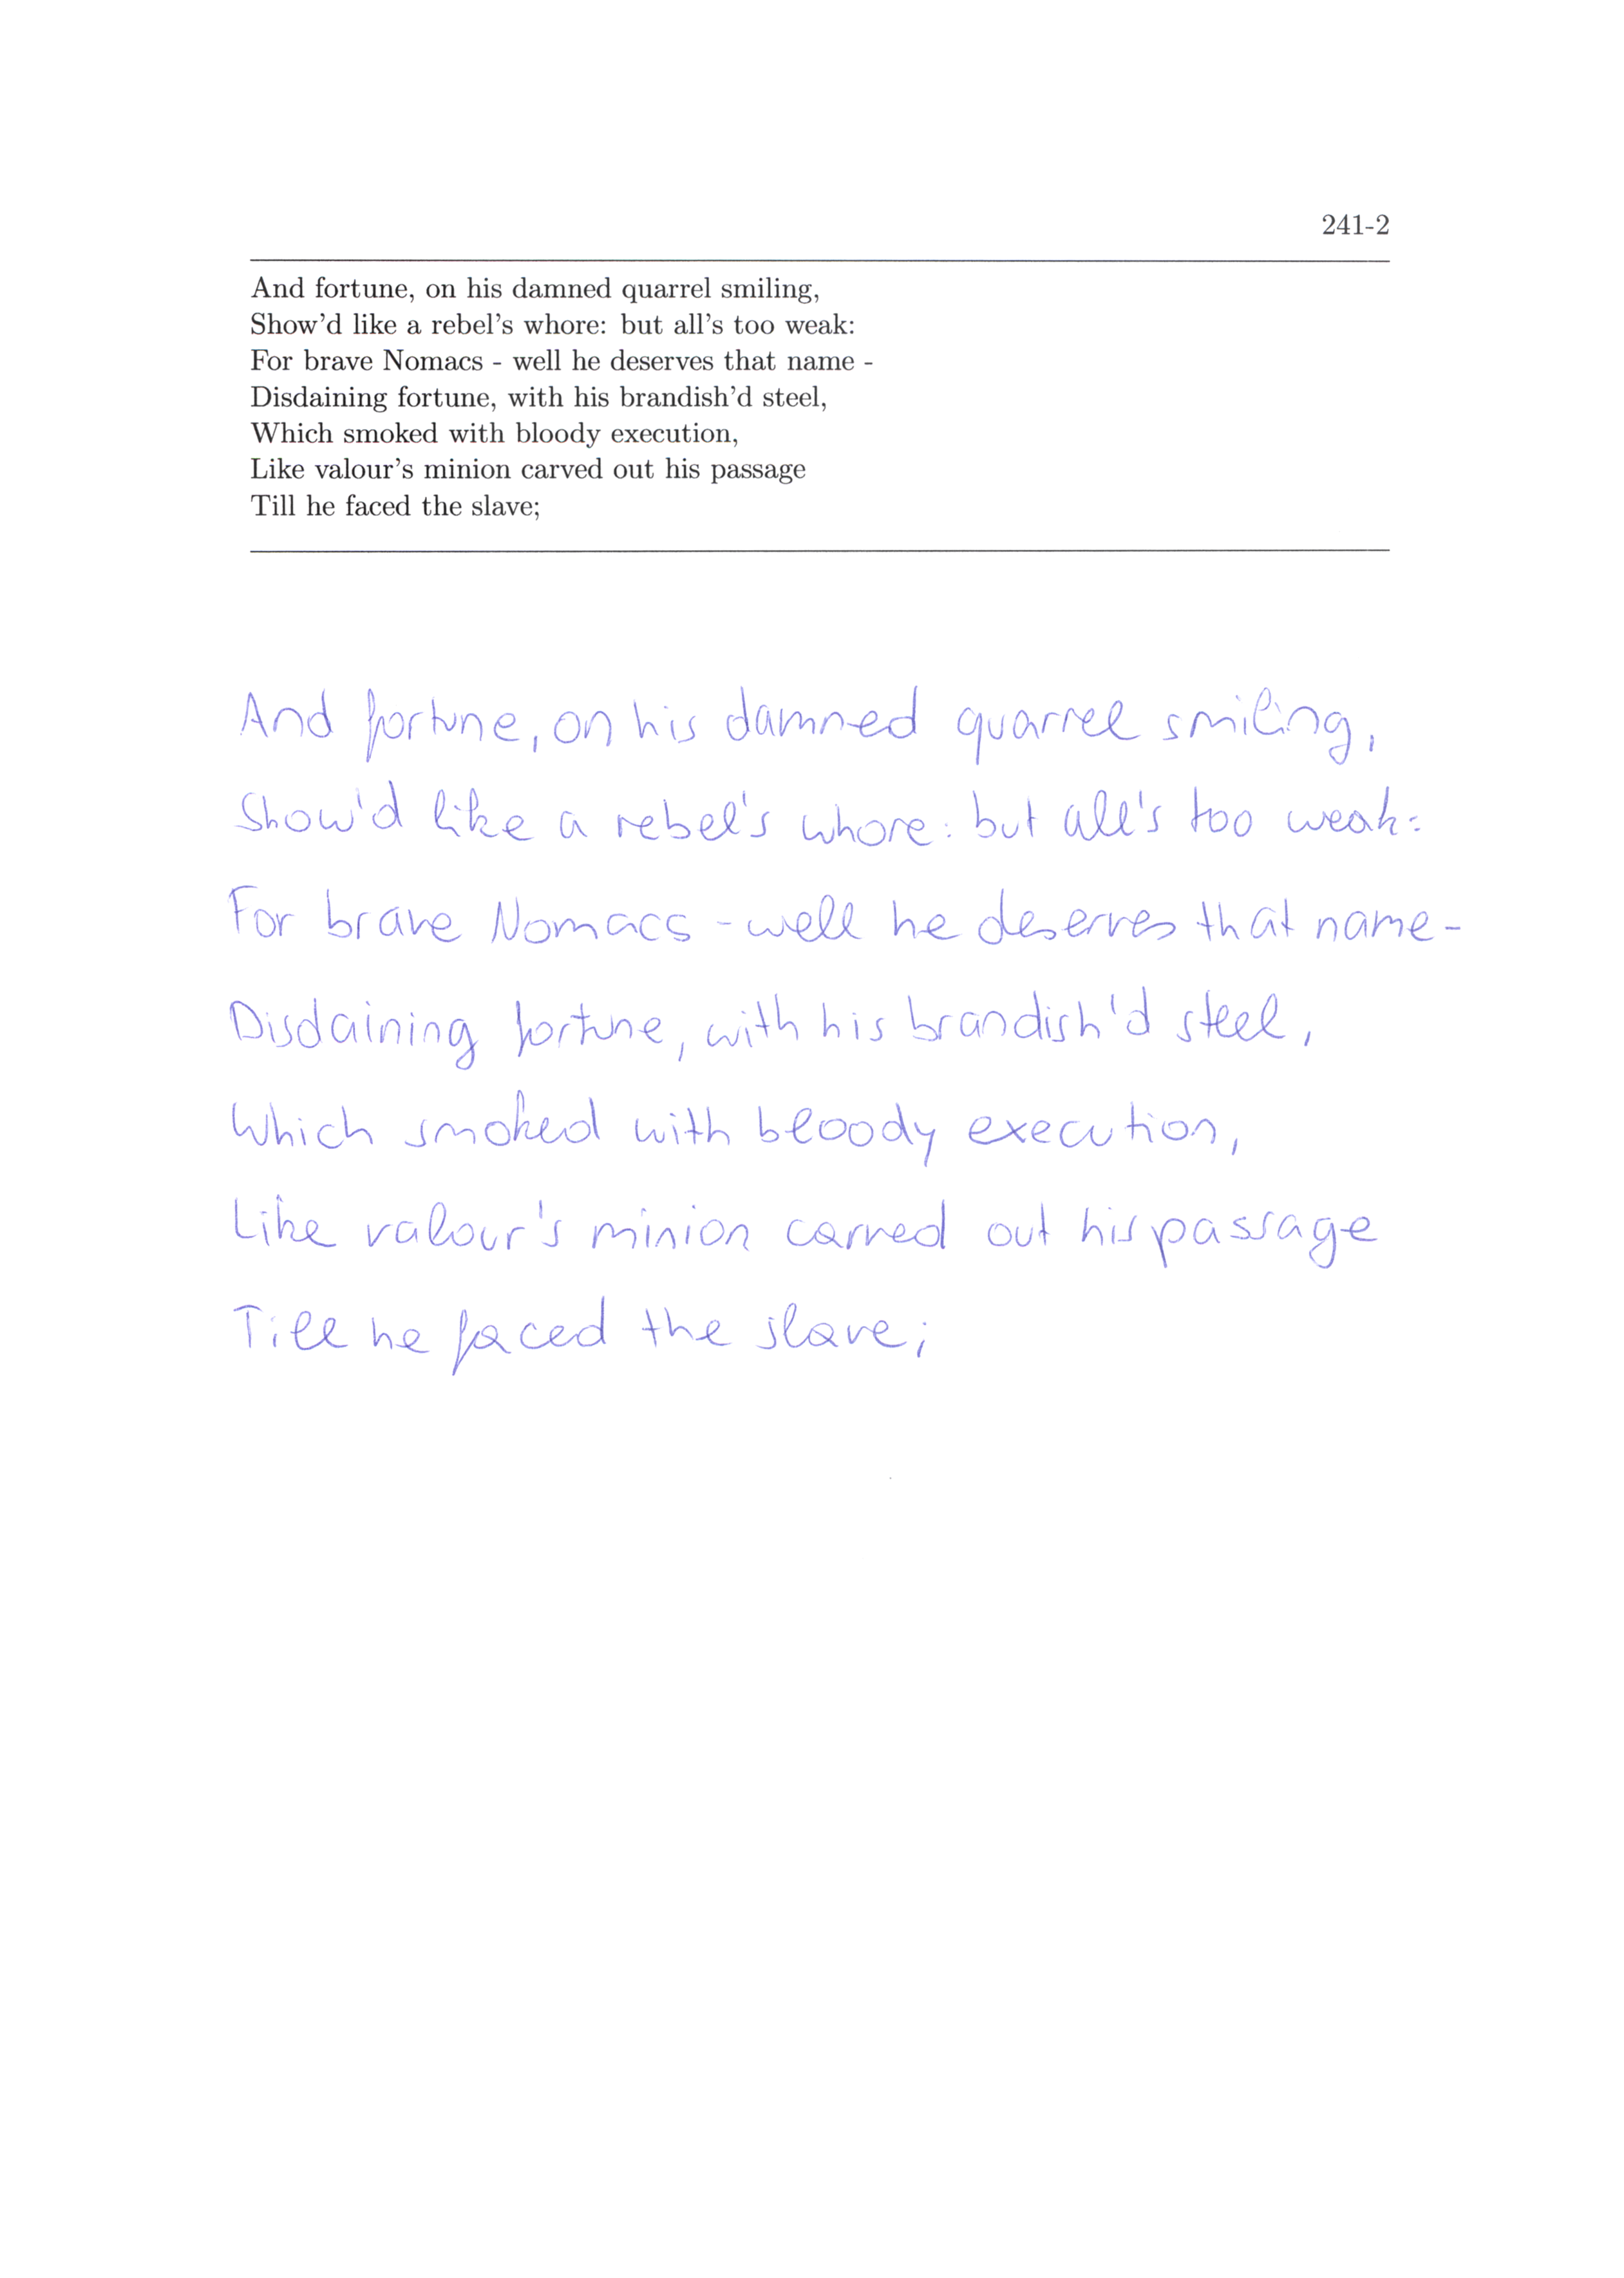 241-2
And fortune, on his damned quarrel smiling,
Show'd like a rebel's whore: but all's too weak:
For brave Nomacs - well he deserves that name -
Disdaining fortune, with his brandish'd steel,
Which smoked with bloody execution,
Like valour's minion carved out his passage
Till he faced the slave;
And fortune, on his damned quarrel smiling,
Show'd like a rebel's whore: but all's too weak:
For brave Nomacs - well he deserves that name -
Disdaining fortune, with his brandish'd steel,
Which smoked with bloody execution,
Like valour's minion carved out his passage
Till he faced the slave;